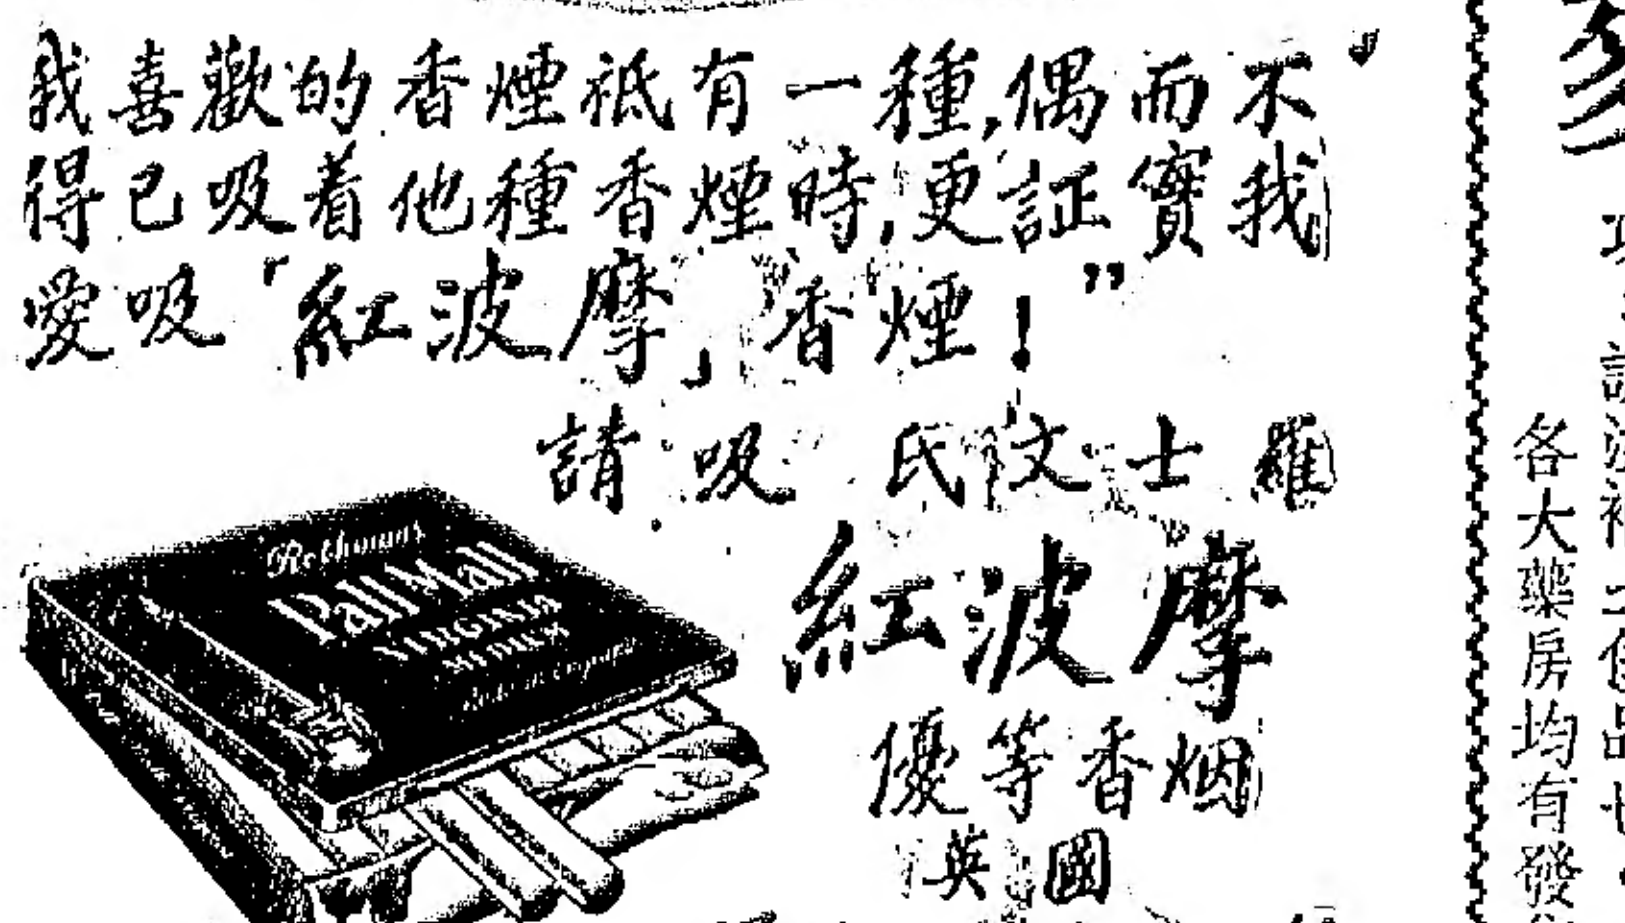 我喜歡的香煙祗有一種,偶而不
得已吸着他種香煙時,更証實我
愛吸「紅波摩」香煙!”
請吸 氏文士羅
紅波摩
優等香烟
英國
Rothmans
Pall Mall
VIRGINIA
各大藥房均有發